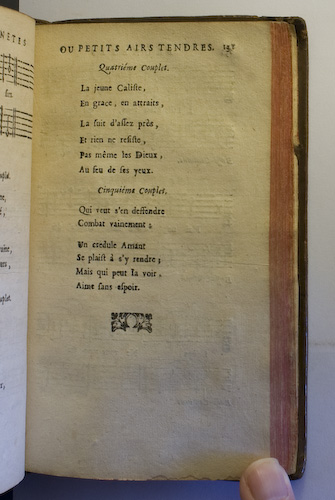 NETES
OU PETITS AIRS TENDRES.
Quatriéme Couplet.
La jeune Caliste,
En grace, en attraits,
La suit d'assez prés,
Et rien ne resiste,
Pas même les Dieux,
Au feu de ses yeux.
Cinquiéme Couplet.
Qui veut s'en deffendre
Combat vainement;
Un credule Amant
Se plaist à s'y rendre;
Mais qui peut la voir,
Aime sans espoir.